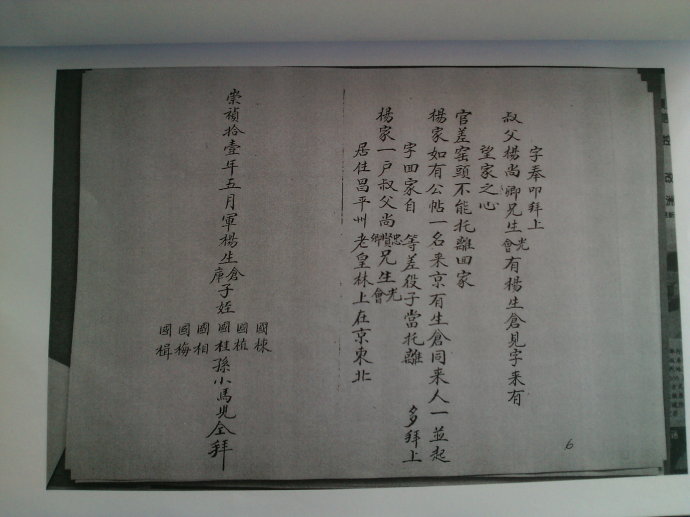 字奉叩拜上
叔父楊尚卿兄生光會有楊生倉見字来有
望家之心
官差窑頭不能托離回家
楊家如有公帖一名来京有生倉同来人一並起
字回家自等差役子當托離 多拜上
楊家一户叔父尚忠賢卿兄生光會
居住昌平州老皇林上在京東北
崇禎拾壹年五月軍楊生倉庫子姪
國棟
國植
國桂孫小馬兒仝拜
國相
國梅
國楫
6